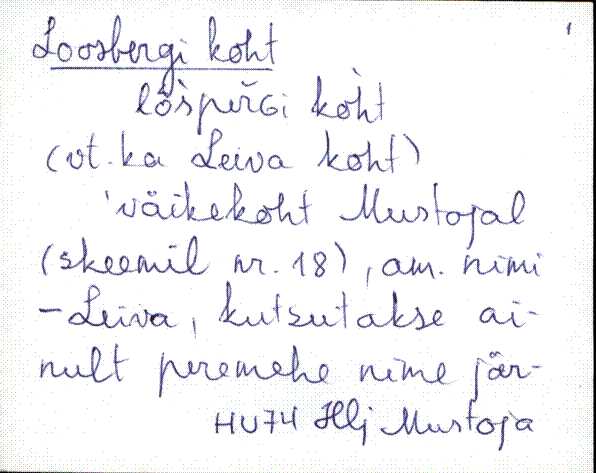 1
Loosbergi koht
lòsperGi koht
(vt. ka Leiva koht)
'väikekoht Mustojal
(skeemil nr. 18), am. nimi
- Leiva, kutsutakse ai-
nult peremehe nime jär-
HU74 Hlj Mustoja